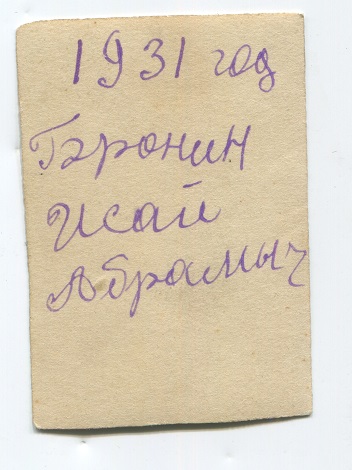 1931 год
Гэронин
Исай
Абрамыч